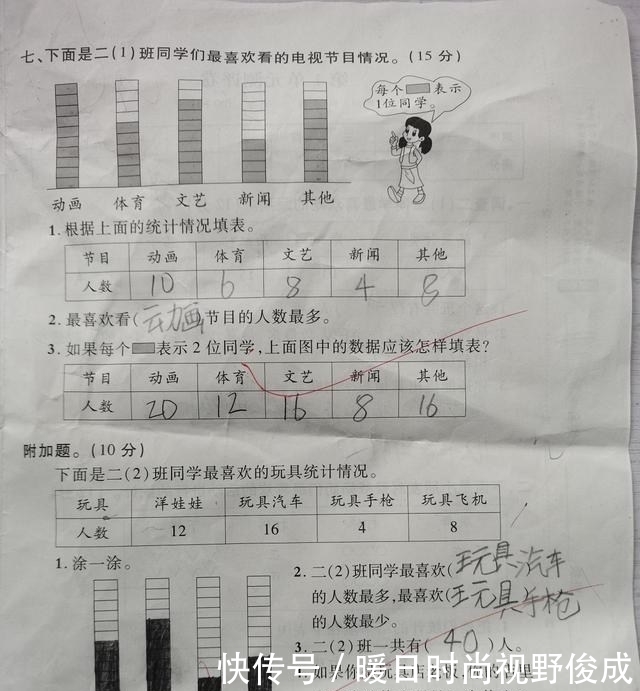 七、下面是二(1)班同学们最喜欢看的电视节目情况。(15分)
每个 表示
1位同学。
动画 体育 文艺 新闻 其他
1.根据上面的统计情况填表。
节目 动画 体育 文艺 新闻 其他
人数 10 6 8 4 8
2.最喜欢看(动画)节目的人数最多。
3.如果每个 表示2位同学,上面图中的数据应该怎样填表?
节目 动画 体育 文艺 新闻 其他
人数 20 12 16 8 16
附加题。(10分)
下面是二(2)班同学最喜欢的玩具统计情况。
玩具 洋娃娃 玩具汽车 玩具手枪 玩具飞机
人数 12 16 4 8
1.涂一涂。
2.二(2)班同学最喜欢(玩具汽车
的人数最多,最喜欢(玩具手枪
的人数最少。
3.二(2)班一共有(40)人。
快传号/暖日时尚视野俊成